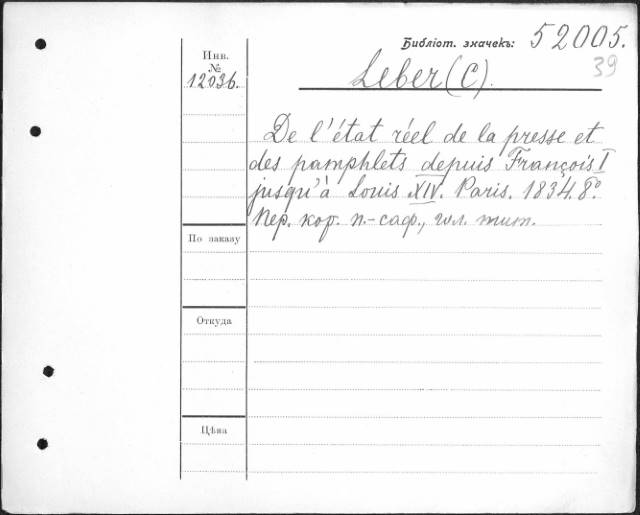 Библіот. значекъ: 52005.
39
Инв.
№
12036.
Leber (C).
De l'état réel de la presse et
des pamphlets depuis François I
jusqu'à Louis XIV. Paris. 1834. 8º.
Пер. кор. п.-саф., гл. тит.
По заказу
Откуда
Цѣна